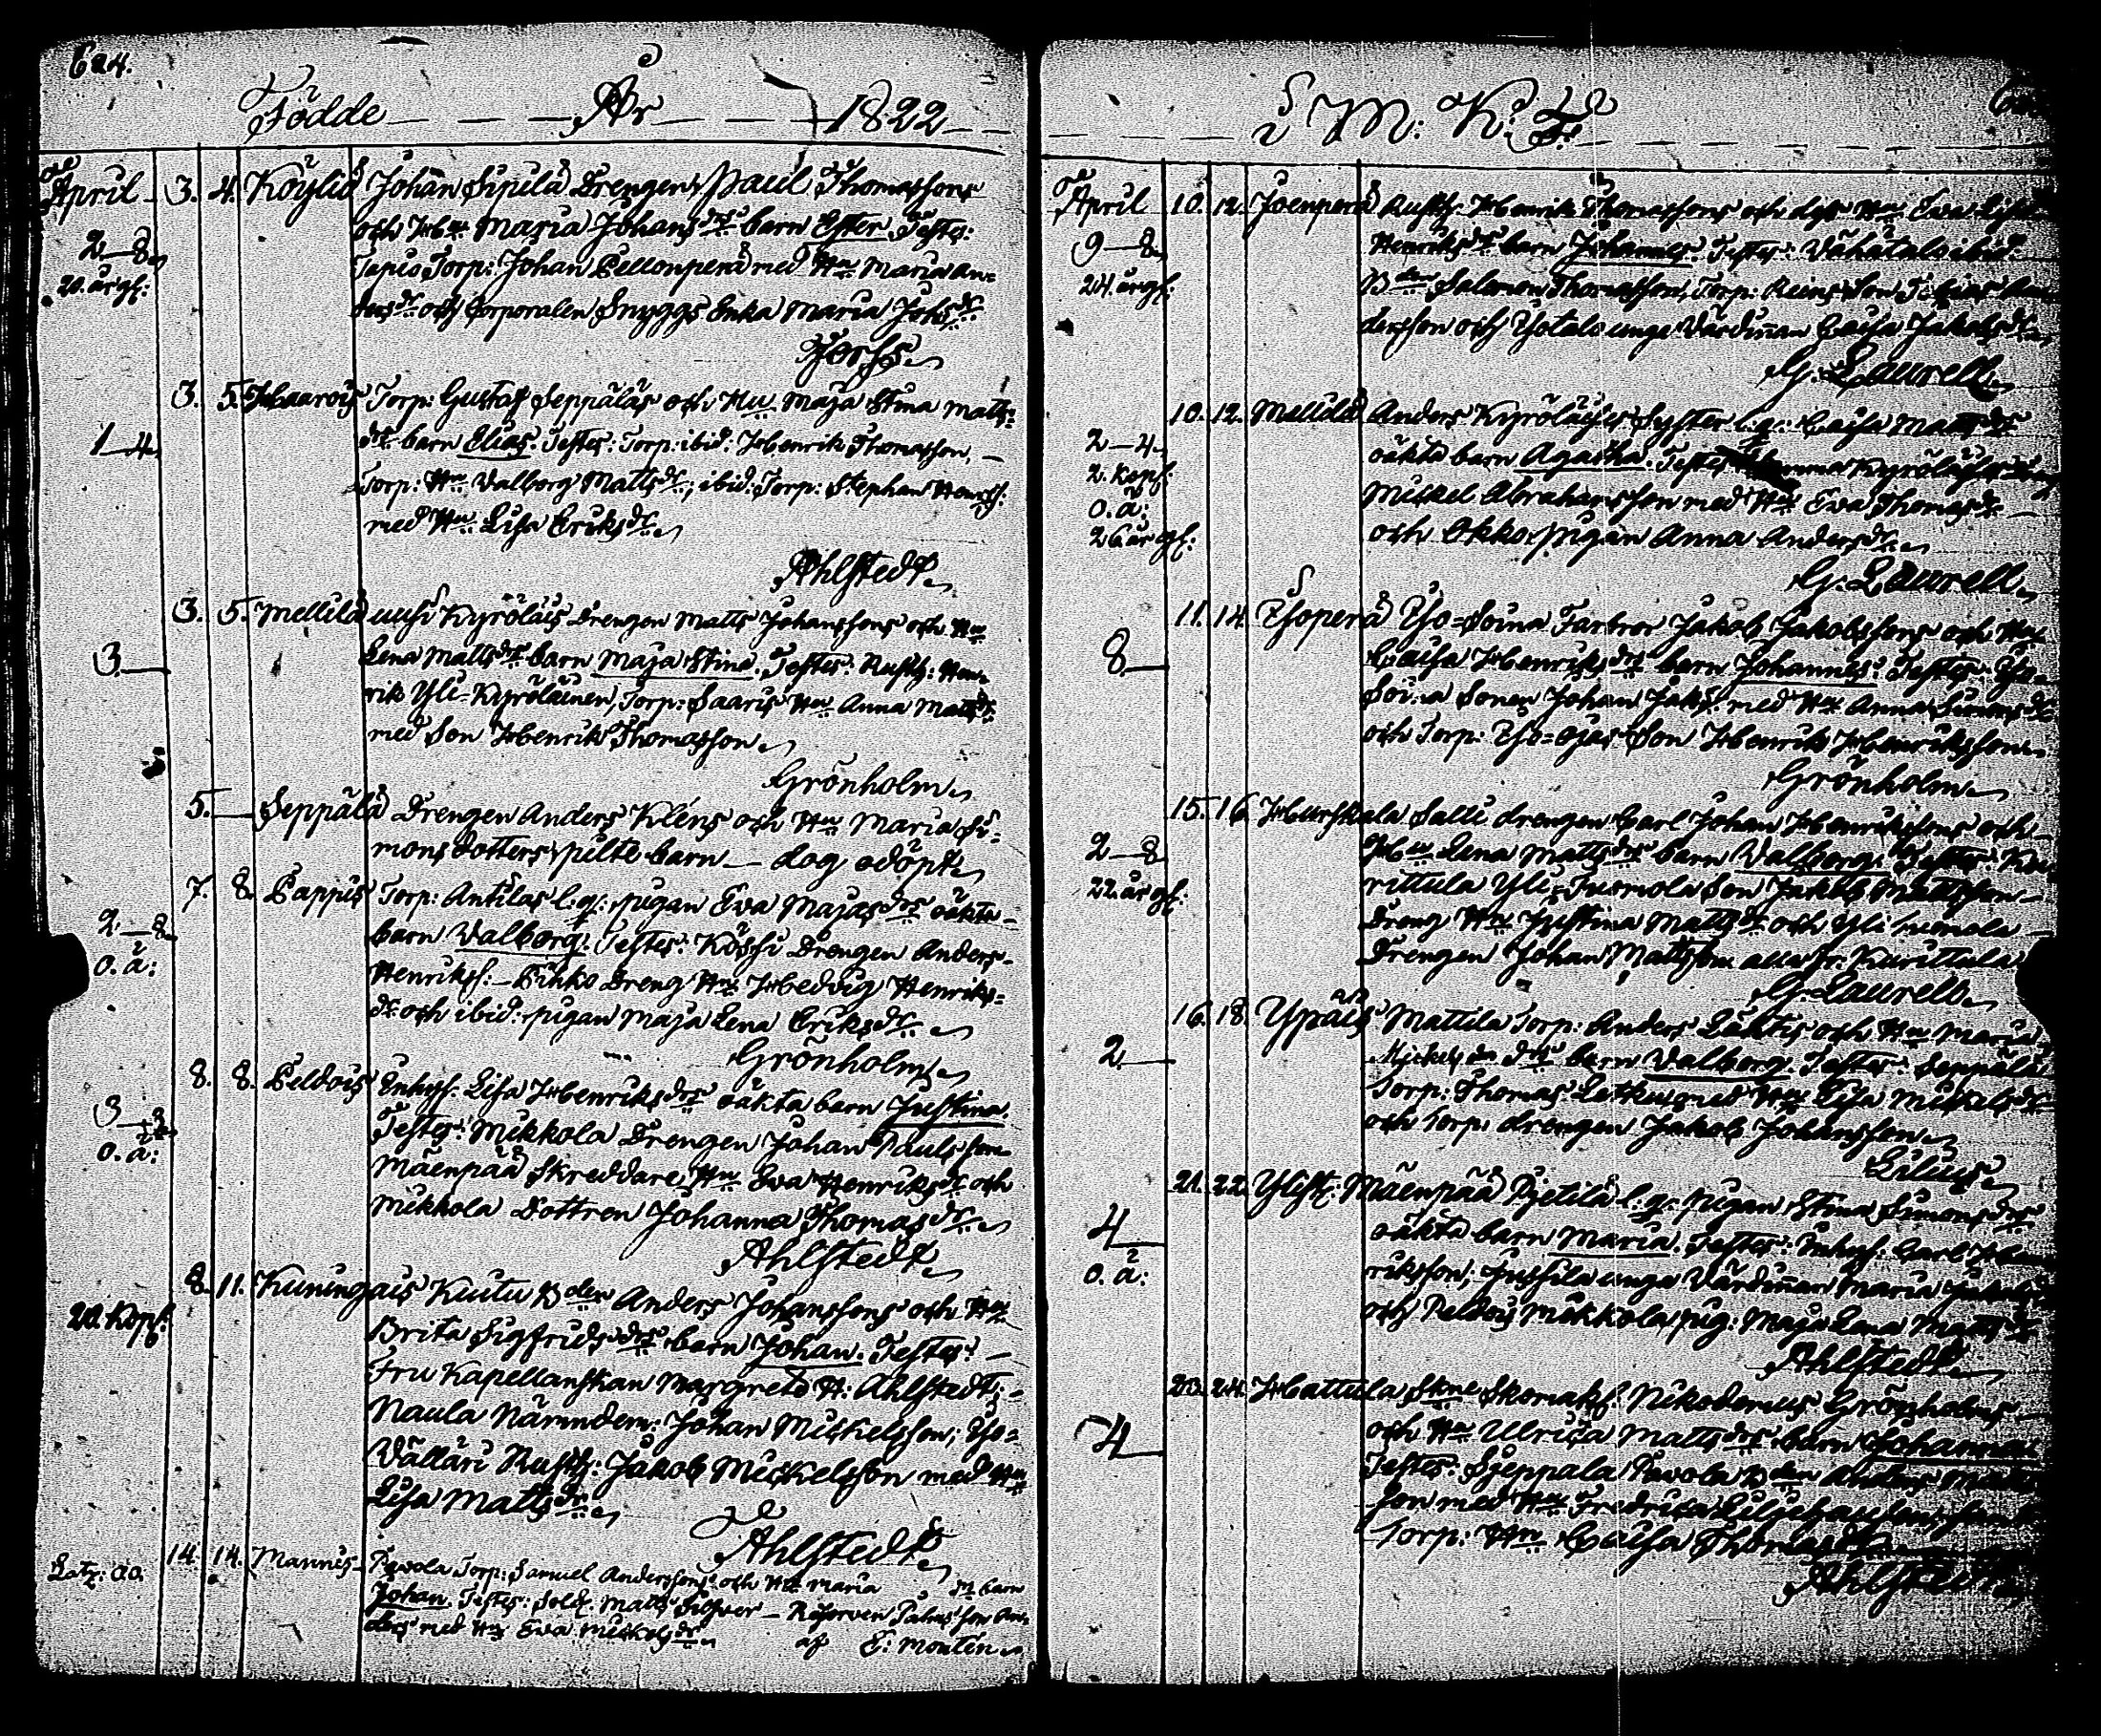 624.
Födde År 1822
April 3. 4. Köyliö Johan Sipilä Drengens Paul Thomassons
och Hu Maria Johans drs barn Ester. Testes:
2—8. Torp: Johan Pellonperä med Hu Maria An=
20. år gl: ders dr och Corporalen Snyggs Enka Maria Johs dr
Forss.
3. 5. Haarois Torp: Gustaf Seppäläs och Hu Maja Stina Matts=
1—4. drs barn Elias. Testes: Torp: ibid: Henrik Thomasson,
Torp: Hu Valborg Matts dr; ibid: Torp: Stephan Henrss:
med Hu Lisa Eriks dr.
Ahlstedt.
3. 5. Mellilä uusi Kyröläis Drengen Matts Johanssons och Hu
3.— Lena Matts drs barn Maja Stina. Testes: Rusth: Hen=
rik Yli=Kyröläinen, Torp: Saaris Hu Anna Matts dr
med Son Henrik Thomasson.
Grönholm.
5. — Seppälä Drengen Anders Kléns och Hu Maria Si=
mons dotters piltebarn — dog odöpt.
7. 8. Pappis Torp: Antilas l:gr: pigan Eva Majas drs oäkta
2—8. barn Valborg. Testes: Kössi Drengen Anders
o. ä: Henrikss: — Pikko Dreng Hu Hedvig Henriks=
dr och ibid: pigan Maja Lena Eriks dr.
Grönholm.
8. 8. Peldois Inhys. Lisa Henriks drs oäkta barn Justina.
Testes: Mikkola Drengen Johan Paulsson
o. ä: Mäenpää Skreddare Hu Eva Henriks dr och
Mikkola Dottren Johanna Thomas dr.
Ahlstedt.
8. 11. Kuningais Kuutu Bden Anders Johanssons och Hu
20. Kop: Brita Sigfrids drs barn Johan. Testes:
Fru Kapellanskan Margreta H: Ahlstedt;
Naula Nämndem: Johan Mickelsson; Iso=
Välläri Rusth: Jakob Mickelsson med Hu
Lisa Matts dr.
Ahlstedt.
14. 14. Mannis Pavola Torp: Samuel Anderssons och Hu Maria dr barn
Johan. Testes: Sold. Matts Silfver — Reserven Palms son An=
ders med Hu Eva Mickels dr. af E: Montin.
i M: K: F:
April 10. 12. Joenperä Rusth: Henrik Thomassons och dess Hu Eva Lisa
9—8. Henriks drs barn Johannes. Testes: Vähätalo ibid:
24. år gl: Bden Salomon Thomasson, Torp: Reins Son
och Isotalo unga Värdinnan Caisa Jakobs dr.
G. Laurell.
10. 12. Mellilä Anders Kyröläises Syster l:gr: Caisa Matts drs
2—4. oäkta barn Agatha. Testes: Kyröläises
2. Kop: Mickel Abrahamsson med Hu Eva Thomas dr
o. ä: och Okko pigan Anna Anders dr.
26 år gl:
G. Laurell.
11. 14. Isoperä Iso=Soina Farbror Jakob Jakobssons och Hu
8.— Caisa Henriks drs barn Johannes. Testes: Iso=
Soina Sonen Johan Jaks: med Hu Anna Simons dr
och Torp: Iso=ojas Son Henrik Henriksson.
Grönholm.
15. 16. Hurskala Salli drengen Carl Johan Henrikssons och
2—8. Hu Lena Matts drs barn Valborg. Testes: Ku=
22. år gl: rittula Yli=Tuomola Son Jakob Mattsson
Dreng Hu Justina Matts dr och Yli Tuomola
Drengen Johan Mattsson alla fr. Kurittula
G. Laurell.
16. 18. Ypäis Mattila Torp: Anders Läntis och Hu Maria
2.— Mickels drs barn Valborg. Testes: Seppälä
Torp: Thomas Letku med Hu Lisa Mickels dr
och Torp: drengen Jakob Johansson.
Lilius.
21. 22. Ylist: Mäenpää Pjetilä l:gr: pigan Stina Simons drs
4.— oäkta barn Maria. Testes: Inhys: Carl Hen=
o. ä: riksson; Jussila unga Värdinnan Maria Jakobs
och Peldois Mikkola pig: Maja Lena Matts dr
Ahlstedt.
23. 24. Hattula Skne Skomak: Nikodemus Grönholms
4.— och Hu Ulrica Matts drs barn Johanna
Testes: Sjeppälä Pavola Bden Anders
son med Hu Fredrica
Torp: Hu Caisa Thomas dr
Ahlstedt.